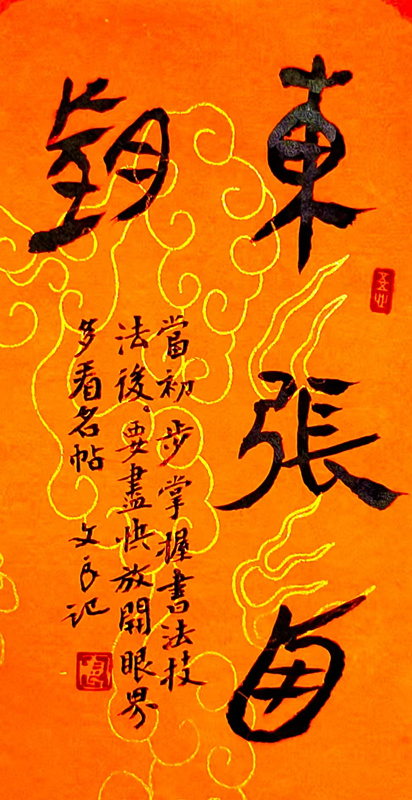 東張西
望
當初步掌握書法技
法後。要盡快放開眼界
多看名帖 文良记